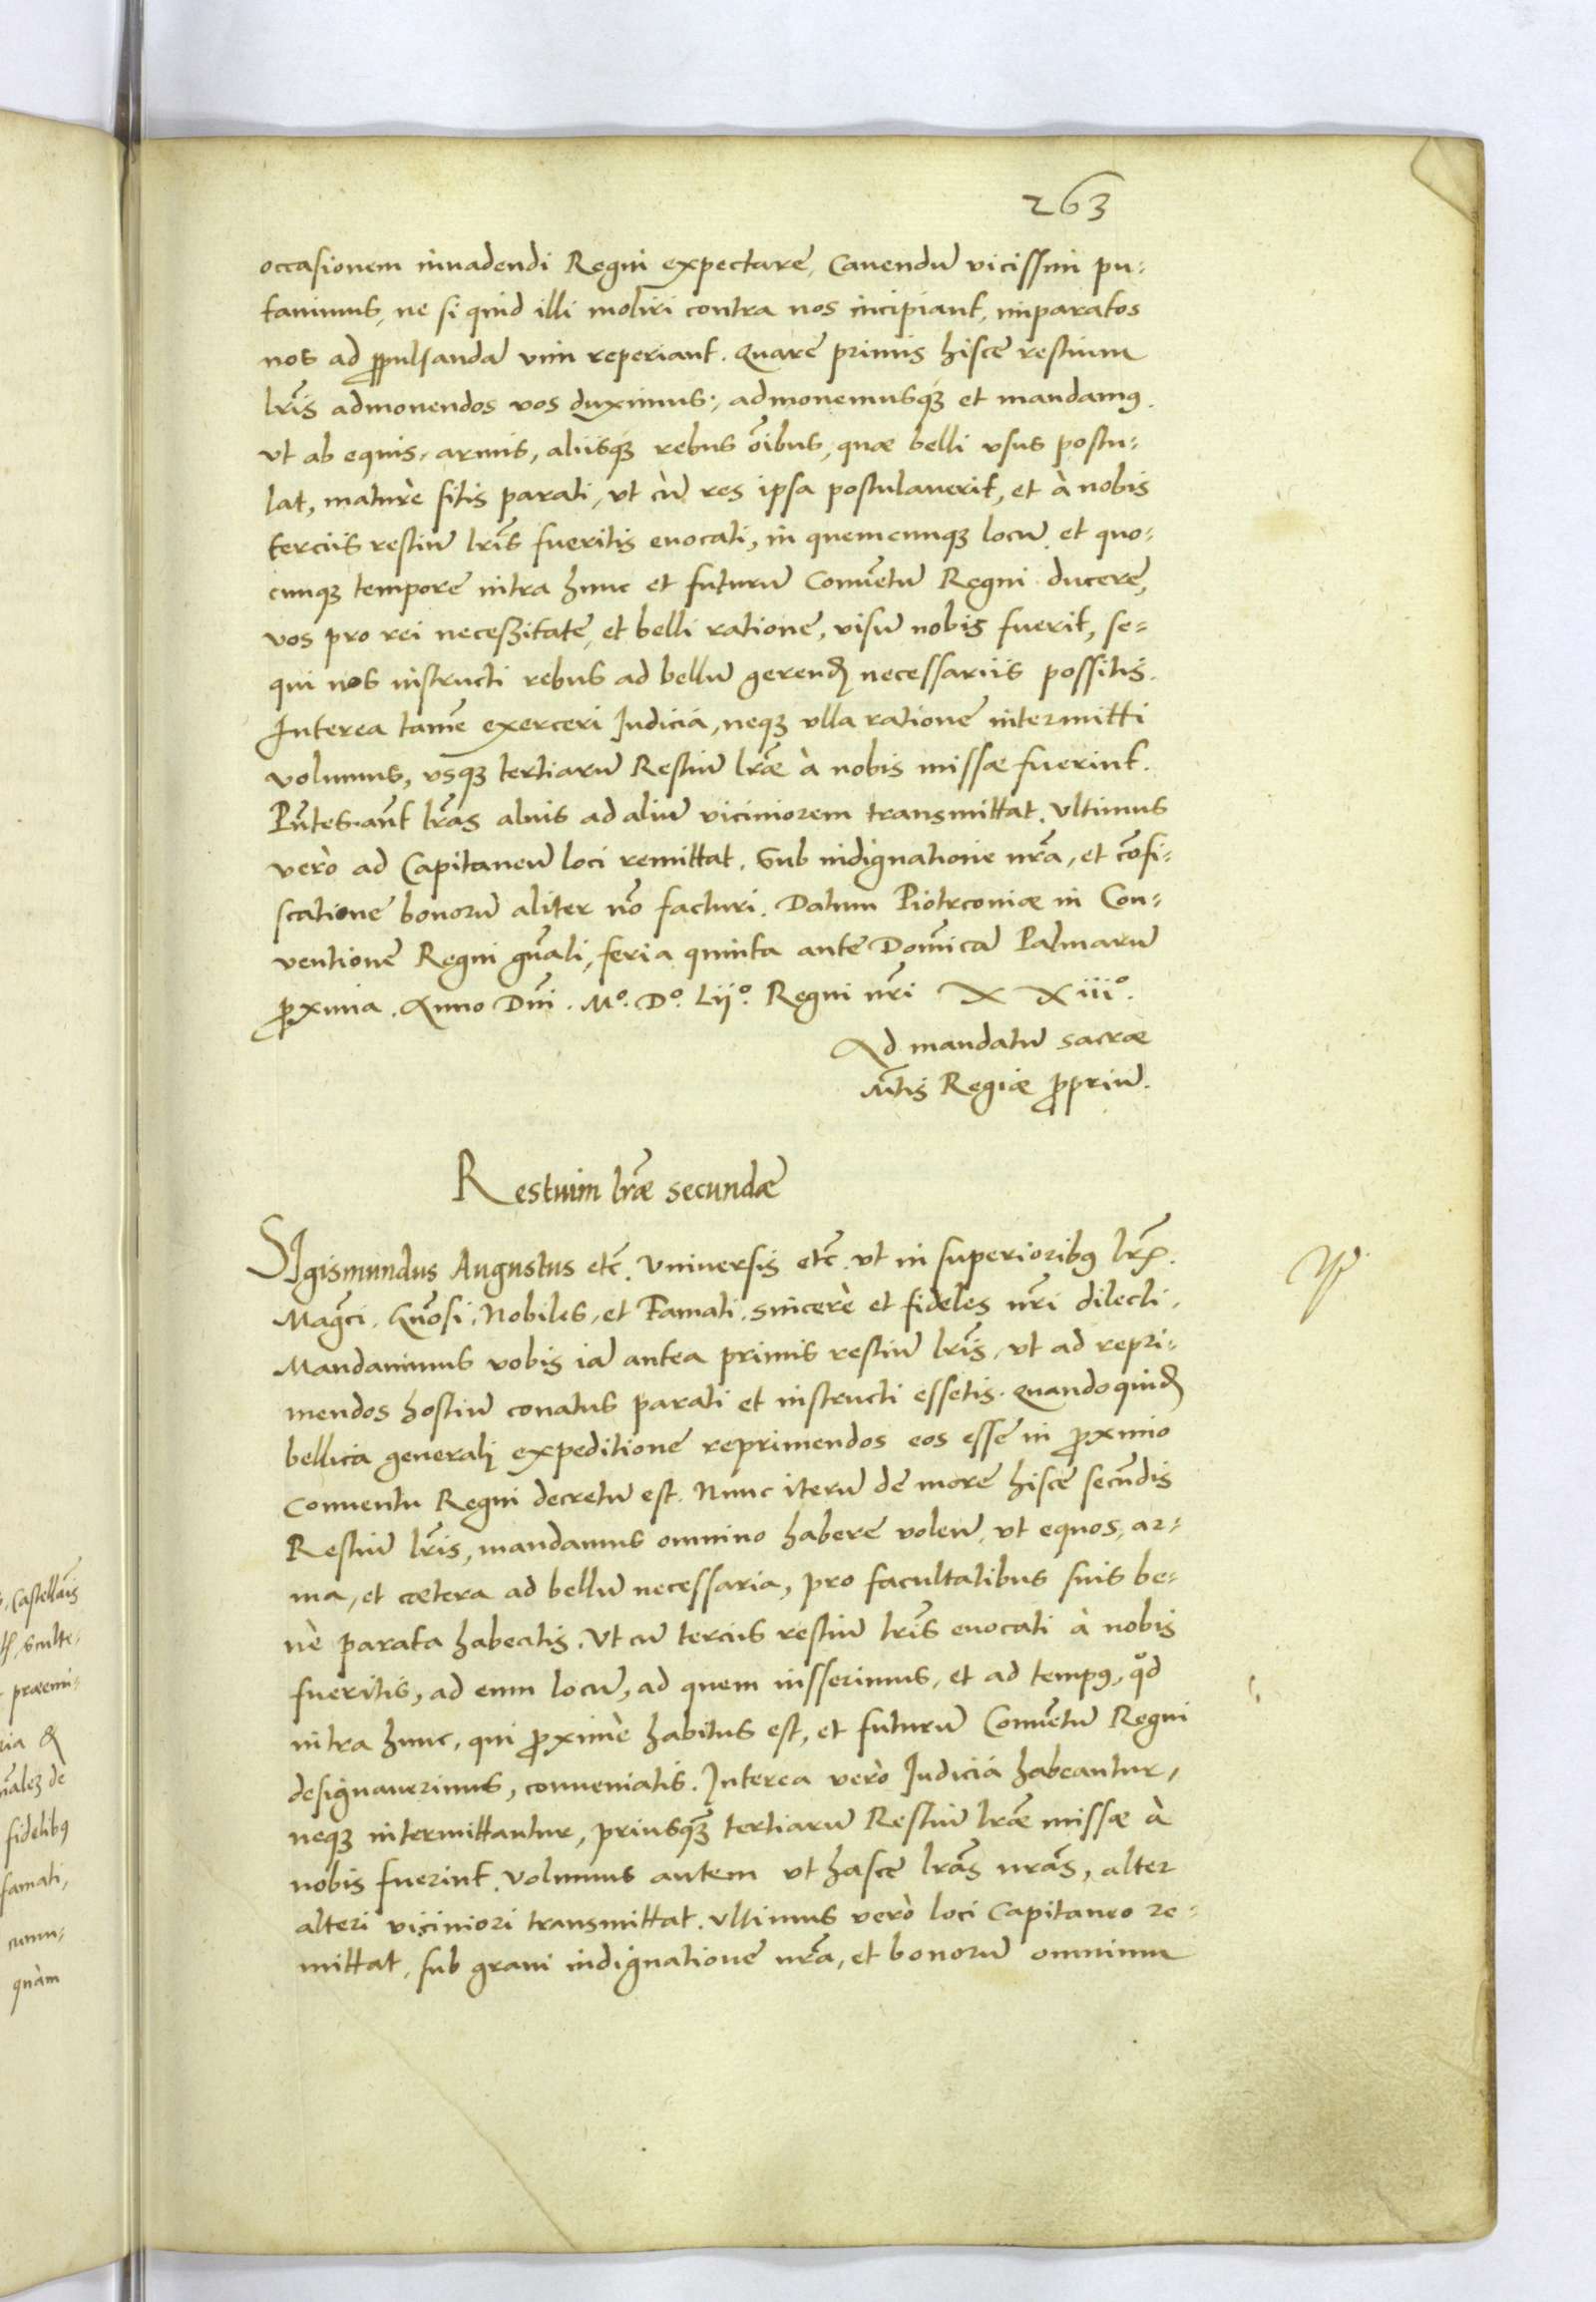 263
occasionem inuadendi Regni expectare, Cauendũ vicissim pu-
tauimus, ne si quid illi moliri contra nos incipiant, imparatos
nos ad ꝓpulsandã vim reperiant. Quare primis hisce restium
lr̃is admonendos vos duximus, admonemusqꝫ et mandamꝰ.
vt ab equis, armis, aliisqꝫ rebus õibus, quae belli vsus postu-
lat, mature sitis parati, vt cũ res ipsa postulauerit, et à nobis
terciis restiũ lr̃is fueritis euocati, in quemcunqꝫ locũ, et quo-
cunqꝫ tempore intra hunc et futurũ Conuẽtũ Regni ducere,
vos pro rei neceßitate, et belli ratione, visũ nobis fuerit, se-
qui nos instructi rebus ad bellũ gerend necessariis possitis.
Interea tamẽ exerceri Iudicia, neqꝫ vlla ratione intermitti
volumus, vsqꝫ tertiarũ Restiũ lr̃ae à nobis missae fuerint.
Pñtes aũt lr̃as alius ad aliũ viciniorem transmittat. Vltimus
vero ad Capitaneũ loci remittat. Sub indignatione nr̃a, et cõfi-
scatione bonorũ aliter nõ facturi. Datum Piotrconiae in Con-
uentione Regni gñali, feria quinta ante Dom̃icã Palmarũ
ꝓxima. Anno Dñi. Mº. Dº. Lijº. Regni nr̃i XXiiiº.
Ad mandatũ sacrae
M̃tis Regiae ꝓpriũ.
Restium lr̃ae secundae
SIgismundus Augustus etc̃. Vniuersis etc̃. vt in superioribꝰ lr̃is.
Mag̃ci, Gñosi, Nobiles, et Famati, sincere et fideles nr̃i dilecti.
Mandauimus vobis iã antea primis restiũ lr̃is, vt ad repri-
mendos hostiũ conatus parati et instructi essetis. Quandoquid
bellica generali expeditione reprimendos eos esse in ꝓximo
Conuentu Regni decretũ est. Nunc iterũ de more hisce secũdis
Restiũ lr̃is, mandamus omnino habere volen, vt equos, ar-
ma, et caetera ad bellũ necessaria, pro facultatibus suis be-
nè parata habeatis. Vt cũ terciis restiũ lr̃is euocati à nobis
fueritis, ad eum locũ, ad quem iusserimus, et ad tempꝰ, qod
intra hunc, qui ꝓxime habitus est, et futurũ Conuẽtũ Regni
designauerimus, conueniatis. Interea vero Iudicia habeantur,
neqꝫ intermittantur, priusqꝫ̃ tertiarũ Restiũ lr̃ae missae à
nobis fuerint. Volumus autem vt hasce lr̃as nr̃as, alter
alteri viciniori transmittat. Vltimus vero loci Capitaneo re-
mittat, sub graui indignatione nr̃a, et bonorũ omnium
Castellañis
sculte-
praemi-
ria &
de
fidelibꝰ
famati,
quàm